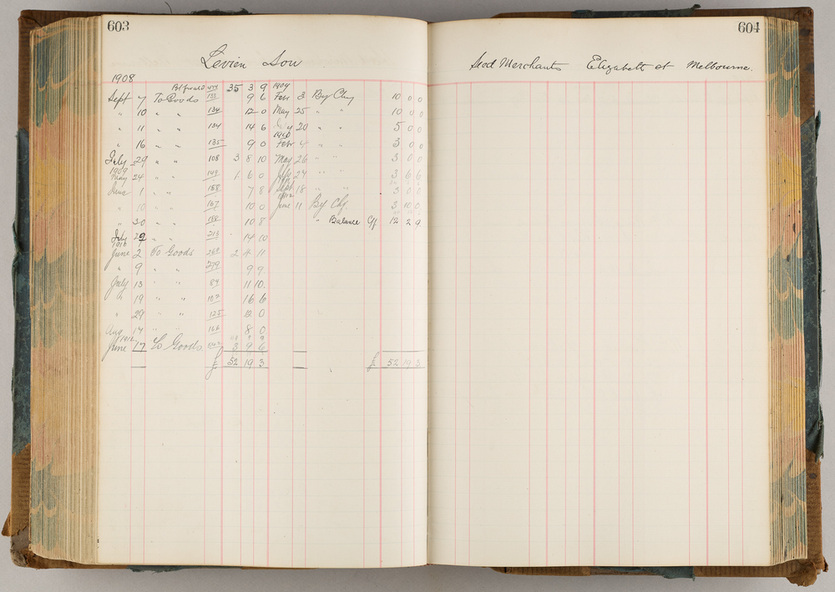 603
604
Levien Son
Seed Merchants Elizabeth st Melbourne
1908
35 3 9 1909
Sept 7 To Goods 9 6 Feby 3 By Chq 10 0 0
" 10 " " 134 12 0 May 25 " " 10 0 0
" 11 " " 134 14 6 20 " " 5 0 0
" 16 " " 135 9 0 " " 3 0 0
July 29 " " 108 3 8 10 May 26 " " 3 0 0
1909
24 " " 1 6 0 24 " " 3 6 6
1 " " 7 8 Sept 18 " " 3 0 0
10 " " 10 0 June 11 By Chq 3 10 0
" 30 " " 10 8 " Balance Cf 12 2 9
July 29 " " 14 10
June 2 To Goods 2 4 11
" 9 " " 9 9
July 13 " " 11 10
" 19 " " 16 6
" 29 " " 12 0
Aug 14 " " 8 0
June 17 To Goods 3 9 6
£ 52 19 3 £ 52 19 3